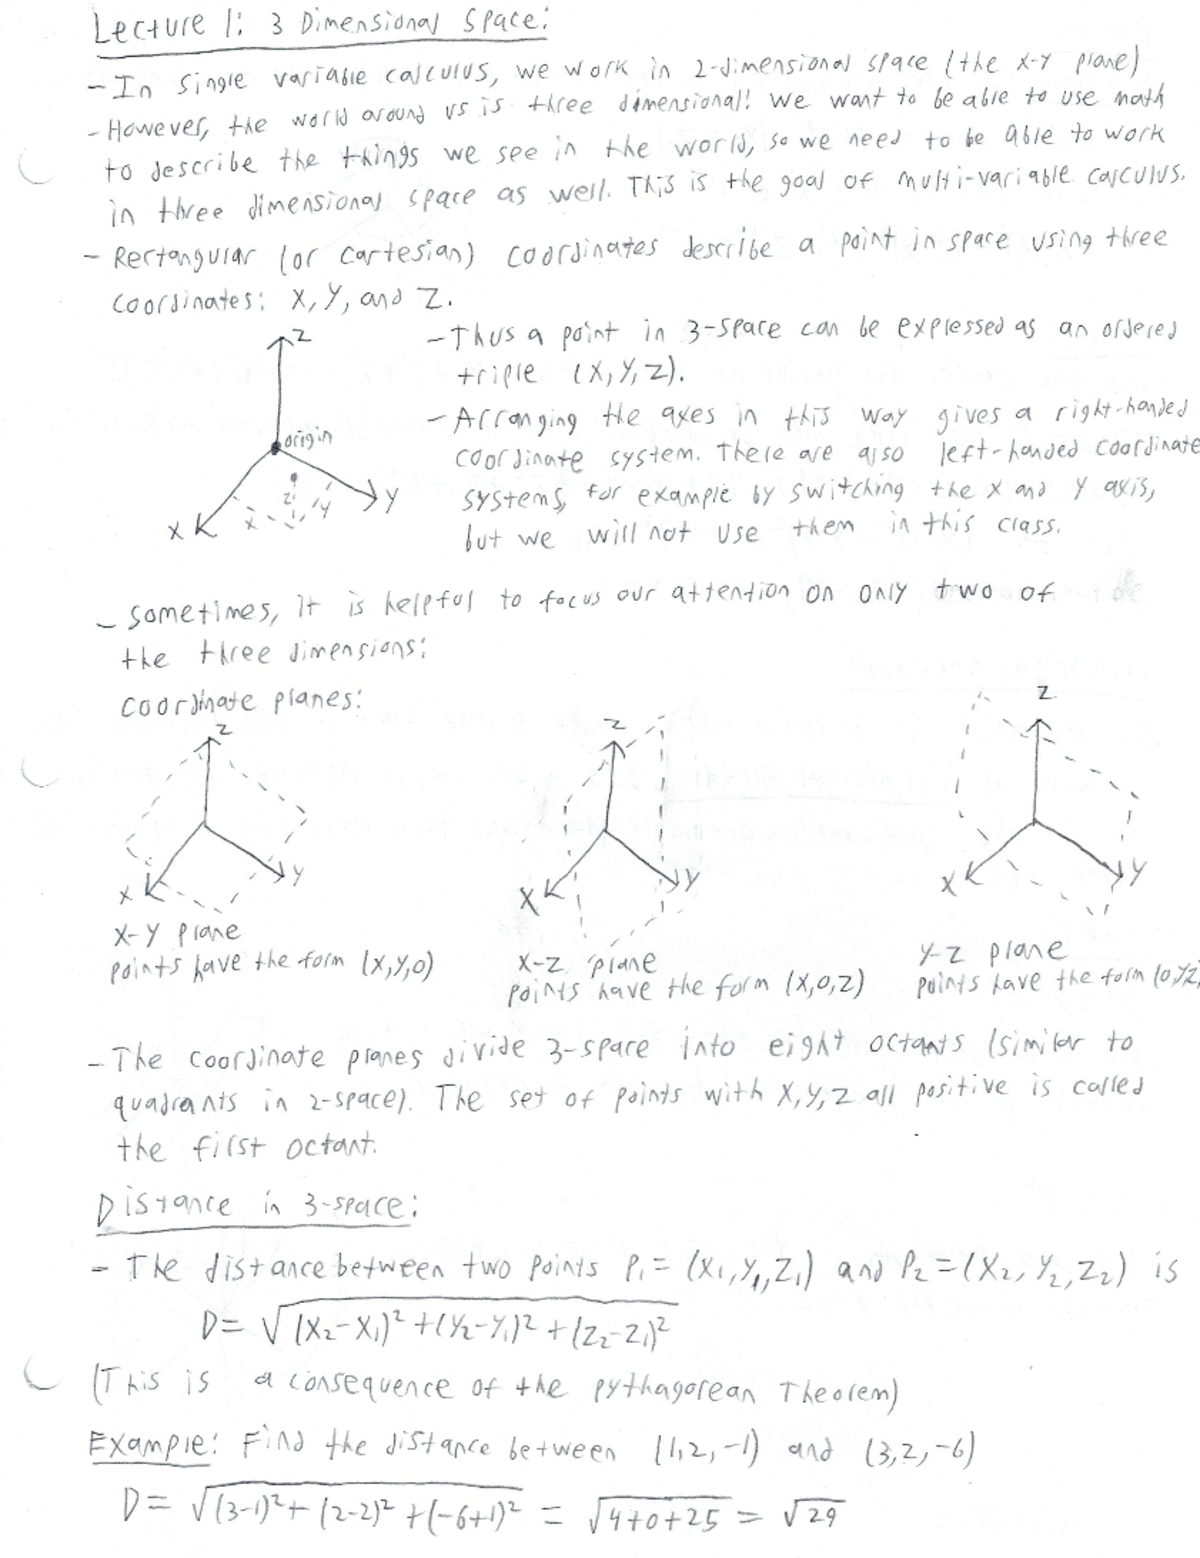 Lecture 1: 3 Dimensional Space:
- In single variable calculus, we work in 2-dimensional space (the x-y plane)
- However, the world around us is three dimensional! We want to be able to use math
to describe the things we see in the world, so we need to be able to work
in three dimensional space as well. This is the goal of multi-variable calculus.
- Rectangular (or Cartesian) coordinates describe a point in space using three
coordinates: X, Y, and Z.
Z
origin
X
Y
x
z
y
- Thus a point in 3-space can be expressed as an ordered
triple (X, Y, Z).
- Arranging the axes in this way gives a right-handed
coordinate system. There are also left-handed coordinate
systems, for example by switching the x and y axis,
but we will not use them in this class.
- Sometimes, it is helpful to focus our attention on only two of
the three dimensions:
Coordinate planes:
Z
X
Y
X-Y plane
points have the form (X,Y,0)
Z
X
Y
X-Z plane
points have the form (X,0,Z)
Z
X
Y
Y-Z plane
points have the form (0,Y,Z)
- The coordinate planes divide 3-space into eight octants (similar to
quadrants in 2-space). The set of points with X, Y, Z all positive is called
the first octant.
Distance in 3-space:
- The distance between two points P₁ = (X₁, Y₁, Z₁) and P₂ = (X₂, Y₂, Z₂) is
D = √(X₂-X₁)² + (Y₂-Y₁)² + (Z₂-Z₁)²
(This is a consequence of the pythagorean Theorem)
Example: Find the distance between (1,2,-1) and (3,2,-6)
D = √(3-1)² + (2-2)² + (-6+1)² = √4+0+25 = √29